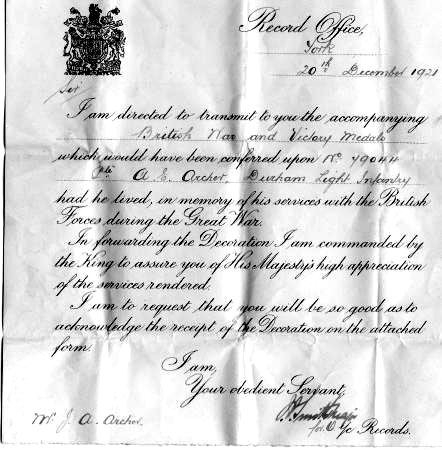 Record Office,
York
20th December 1921
Sir
I am directed to transmit to you the accompanying
British War and Victory Medals
which would have been conferred upon No 79044
Pte A. E. Archer, Durham Light Infantry
had he lived, in memory of his services with the British
Forces during the Great War.
In forwarding the Decoration I am commanded by
the King to assure you of His Majesty's high appreciation
of the services rendered.
I am to request that you will be so good as to
acknowledge the receipt of the Decoration on the attached
form.
I am,
Your obedient Servant,
for O. i/c Records.
Mr J. A. Archer.